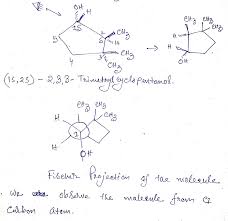 OH
H
CH3
H
CH3
CH3
5
4
3
H
CH3
CH3
H
CH3
OH
(1S,2S) - 2,3,3- Trimethylcyclopentanol.
CH3
CH3
H
CH3
H
OH
Fischer Projection of the molecule
We observe the molecule from C2
Carbon atom.